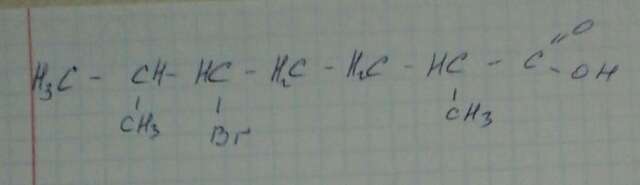 O
H₃C - CH - HC - H₂C - H₂C - HC - C = - OH
CH₃ Br CH₃